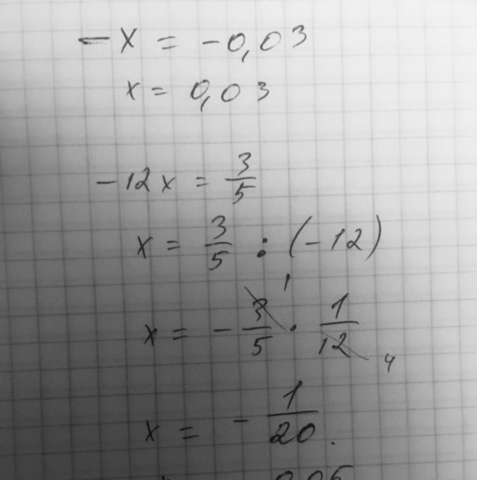 -x = -0,03
x = 0,03
-12x = 3/5
x = 3/5 : (-12)
x = - 3/5 · 1/12
1
4
x = - 1/20.